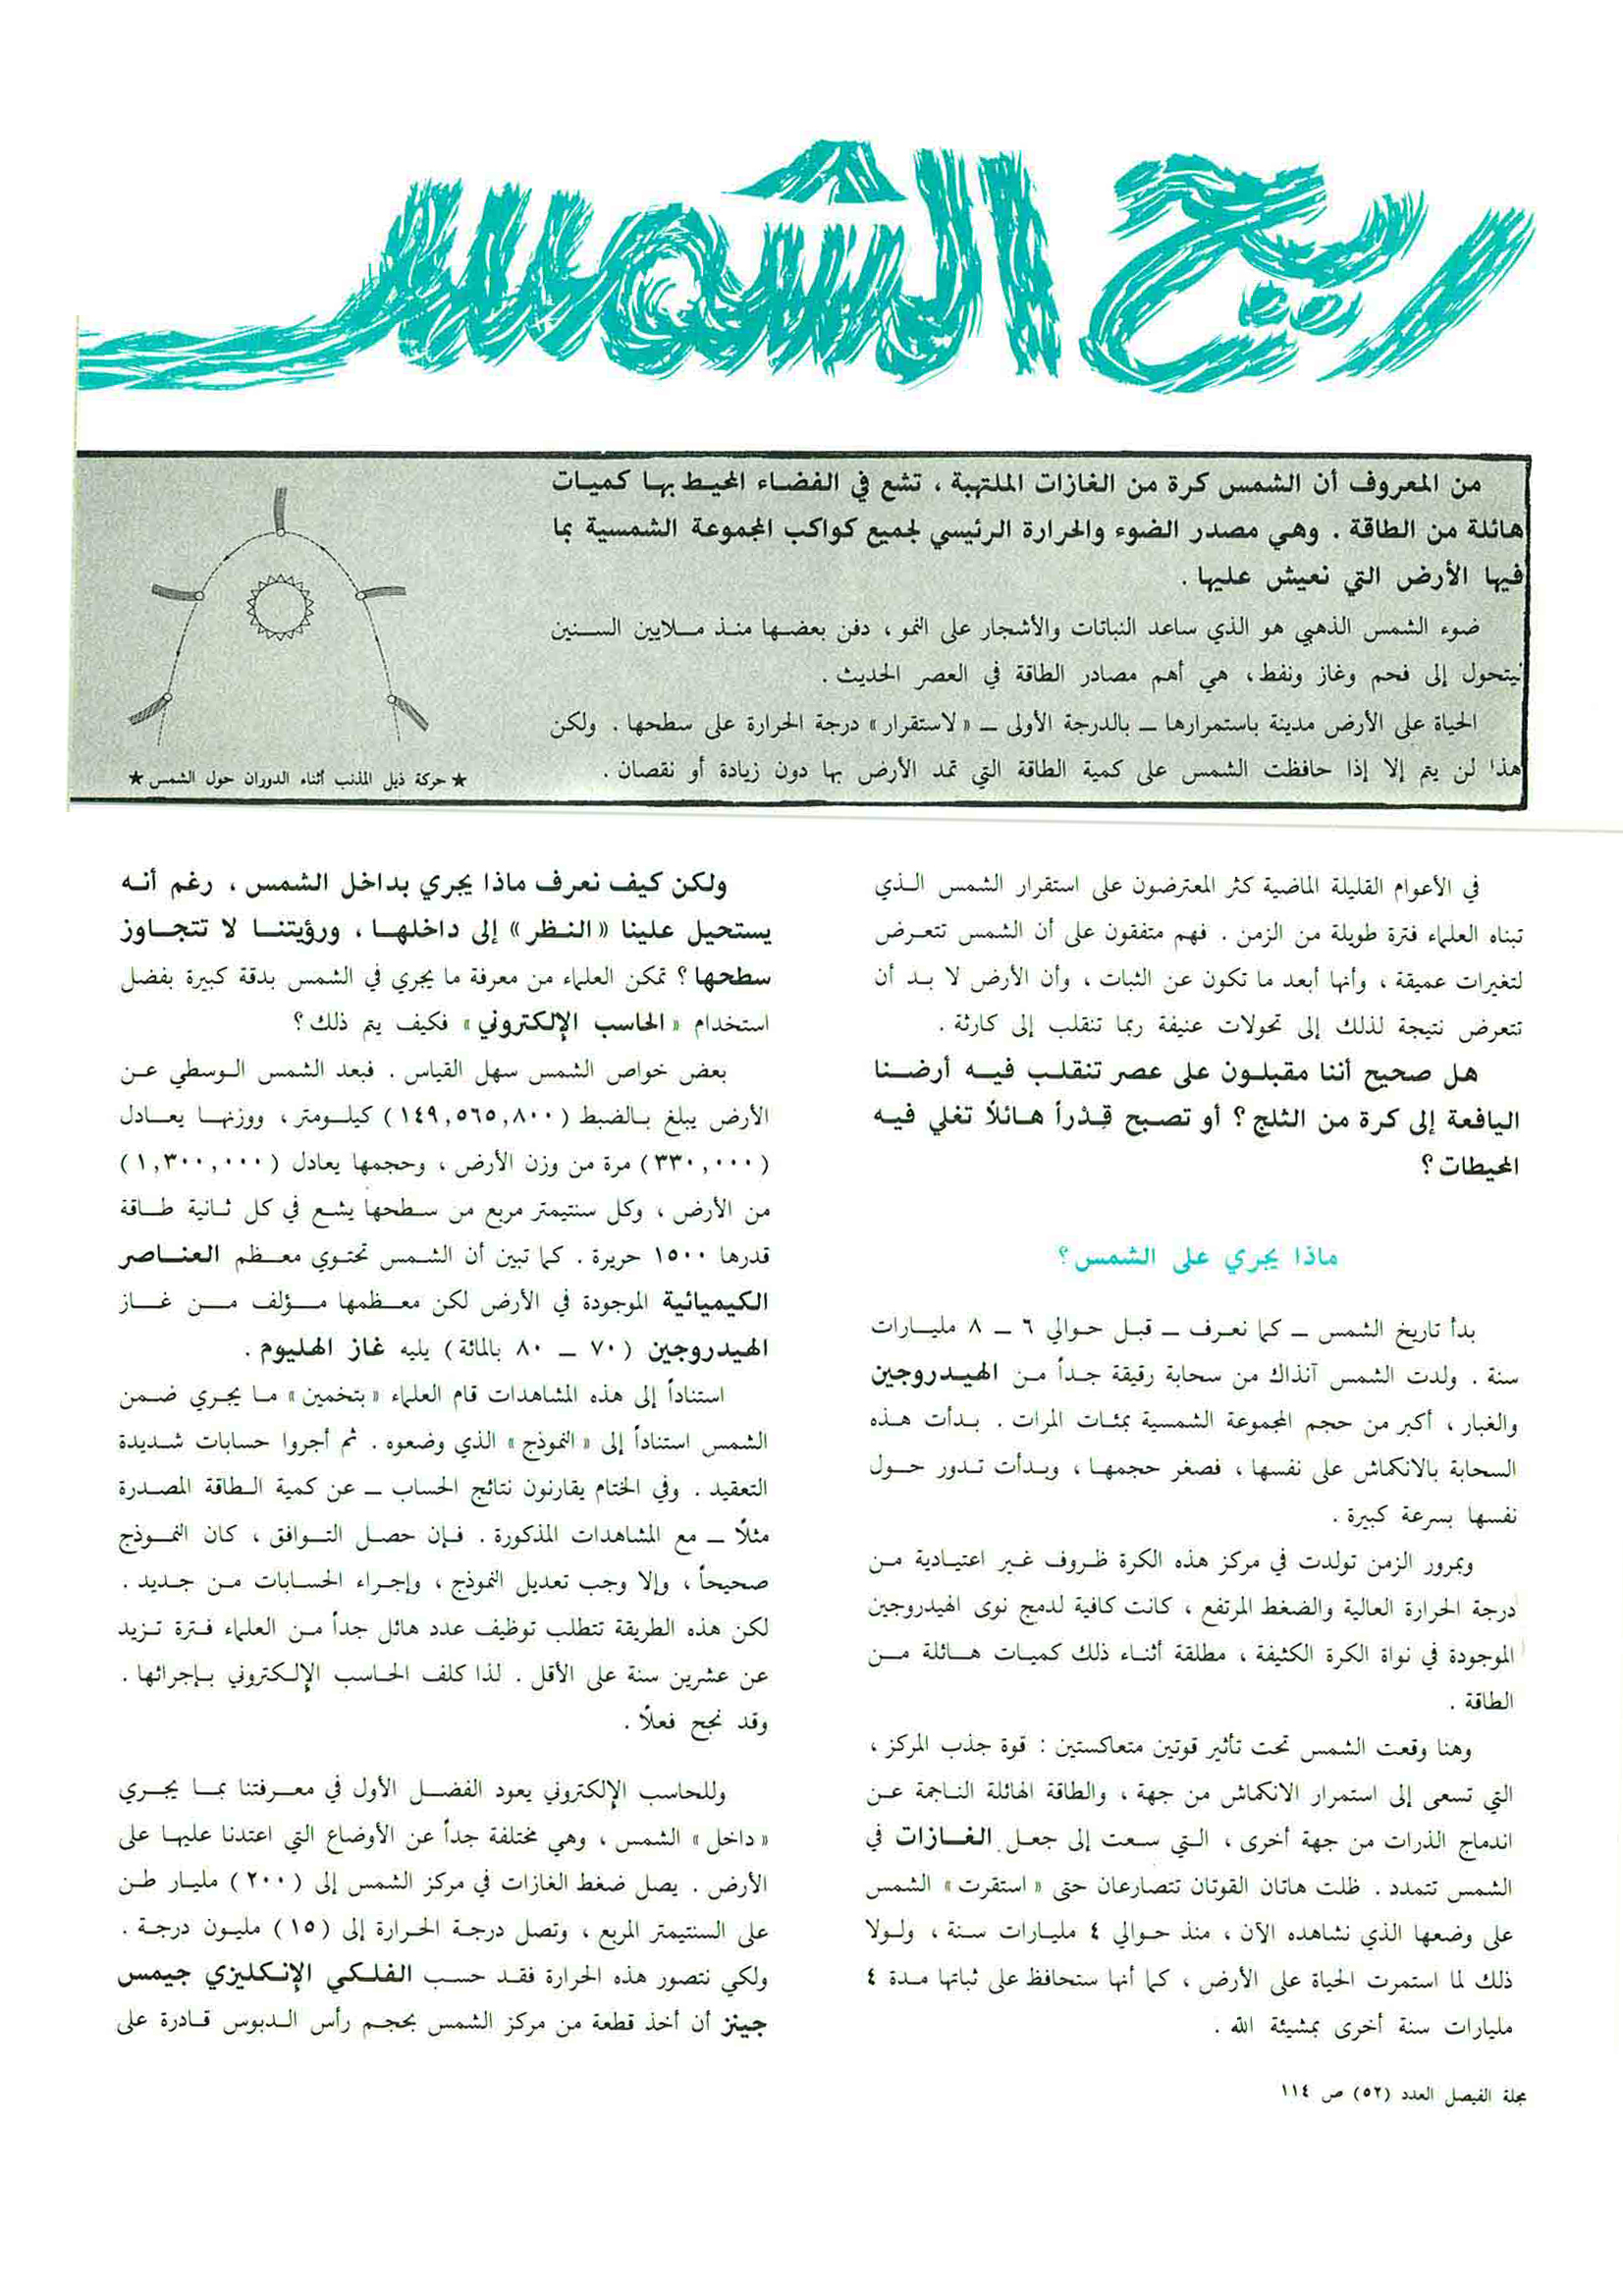 ريح الشمس
من المعروف أن الشمس كرة من الغازات الملتهبة ، تشع في الفضاء المحيط بها كميات
هائلة من الطاقة . وهي مصدر الضوء والحرارة الرئيسي لجميع كواكب المجموعة الشمسية بما
فيها الأرض التي نعيش عليها .
ضوء الشمس الذهبي هو الذي ساعد النباتات والأشجار على النمو ، دفن بعضها منذ ملايين السنين
ليتحول إلى فحم وغاز ونفط ، هي أهم مصادر الطاقة في العصر الحديث .
الحياة على الأرض مدينة باستمرارها – بالدرجة الأولى – « لاستقرار » درجة الحرارة على سطحها . ولكن
هذا لن يتم إلا إذا حافظت الشمس على كمية الطاقة التي تمد الأرض بها دون زيادة أو نقصان .
★ حركة ذيل المذنب أثناء الدوران حول الشمس ★
في الأعوام القليلة الماضية كثر المعترضون على استقرار الشمس الذي
تبناه العلماء فترة طويلة من الزمن . فهم متفقون على أن الشمس تتعرض
لتغيرات عميقة ، وأنها أبعد ما تكون عن الثبات ، وأن الأرض لا بد أن
تتعرض نتيجة لذلك إلى تحولات عنيفة ربما تنقلب إلى كارثة .
هل صحيح أننا مقبلون على عصر تنقلب فيه أرضنا
اليافعة إلى كرة من الثلج ؟ أو تصبح قِدْراً هائلاً تغلي فيه
المحيطات ؟
ماذا يجري على الشمس ؟
بدأ تاريخ الشمس – كما نعرف – قبل حوالي ٦ – ٨ مليارات
سنة . ولدت الشمس آنذاك من سحابة رقيقة جداً من الهيدروجين
والغبار ، أكبر من حجم المجموعة الشمسية بمئات المرات . بدأت هذه
السحابة بالانكماش على نفسها ، فصغر حجمها ، وبدأت تدور حول
نفسها بسرعة كبيرة .
وبمرور الزمن تولدت في مركز هذه الكرة ظروف غير اعتيادية من
درجة الحرارة العالية والضغط المرتفع ، كانت كافية لدمج نوى الهيدروجين
الموجودة في نواة الكرة الكثيفة ، مطلقة أثناء ذلك كميات هائلة من
الطاقة .
وهنا وقعت الشمس تحت تأثير قوتين متعاكستين : قوة جذب المركز ،
التي تسعى إلى استمرار الانكماش من جهة ، والطاقة الهائلة الناجمة عن
اندماج الذرات من جهة أخرى ، التي سعت إلى جعل الغازات في
الشمس تتمدد . ظلت هاتان القوتان تتصارعان حتى « استقرت » الشمس
على وضعها الذي نشاهده الآن ، منذ حوالي ٤ مليارات سنة ، ولولا
ذلك لما استمرت الحياة على الأرض ، كما أنها ستحافظ على ثباتها مدة ٤
مليارات سنة أخرى بمشيئة الله .
ولكن كيف نعرف ماذا يجري بداخل الشمس ، رغم أنه
يستحيل علينا « النظر » إلى داخلها ، ورؤيتنا لا تتجاوز
سطحها ؟ تمكن العلماء من معرفة ما يجري في الشمس بدقة كبيرة بفضل
استخدام « الحاسب الإلكتروني » فكيف يتم ذلك ؟
بعض خواص الشمس سهل القياس . فبعد الشمس الوسطي عن
الأرض يبلغ بالضبط (١٤٩,٥٦٥,٨٠٠) كيلومتر ، ووزنها يعادل
(٣٣٠,٠٠٠) مرة من وزن الأرض ، وحجمها يعادل (١,٣٠٠,٠٠٠)
من الأرض ، وكل سنتيمتر مربع من سطحها يشع في كل ثانية طاقة
قدرها ١٥٠٠ حريرة . كما تبين أن الشمس تحتوي معظم العناصر
الكيميائية الموجودة في الأرض لكن معظمها مؤلف من غاز
الهيدروجين (٧٠ – ٨٠ بالمائة) يليه غاز الهليوم .
استناداً إلى هذه المشاهدات قام العلماء « بتخمين » ما يجري ضمن
الشمس استناداً إلى « النموذج » الذي وضعوه . ثم أجروا حسابات شديدة
التعقيد . وفي الختام يقارنون نتائج الحساب – عن كمية الطاقة المصدرة
مثلاً – مع المشاهدات المذكورة . فإن حصل التوافق ، كان النموذج
صحيحاً ، وإلا وجب تعديل النموذج ، وإجراء الحسابات من جديد .
لكن هذه الطريقة تتطلب توظيف عدد هائل جداً من العلماء فترة تزيد
عن عشرين سنة على الأقل . لذا كلف الحاسب الإلكتروني بإجرائها .
وقد نجح فعلاً .
وللحاسب الإلكتروني يعود الفضل الأول في معرفتنا بما يجري
« داخل » الشمس ، وهي مختلفة جداً عن الأوضاع التي اعتدنا عليها على
الأرض . يصل ضغط الغازات في مركز الشمس إلى (٢٠٠) مليار طن
على السنتيمتر المربع ، وتصل درجة الحرارة إلى (١٥) مليون درجة .
ولكي نتصور هذه الحرارة فقد حسب الفلكي الإنكليزي جيمس
جينز أن أخذ قطعة من مركز الشمس بحجم رأس الدبوس قادرة على
مجلة الفيصل العدد (٥٢) ص ١١٤